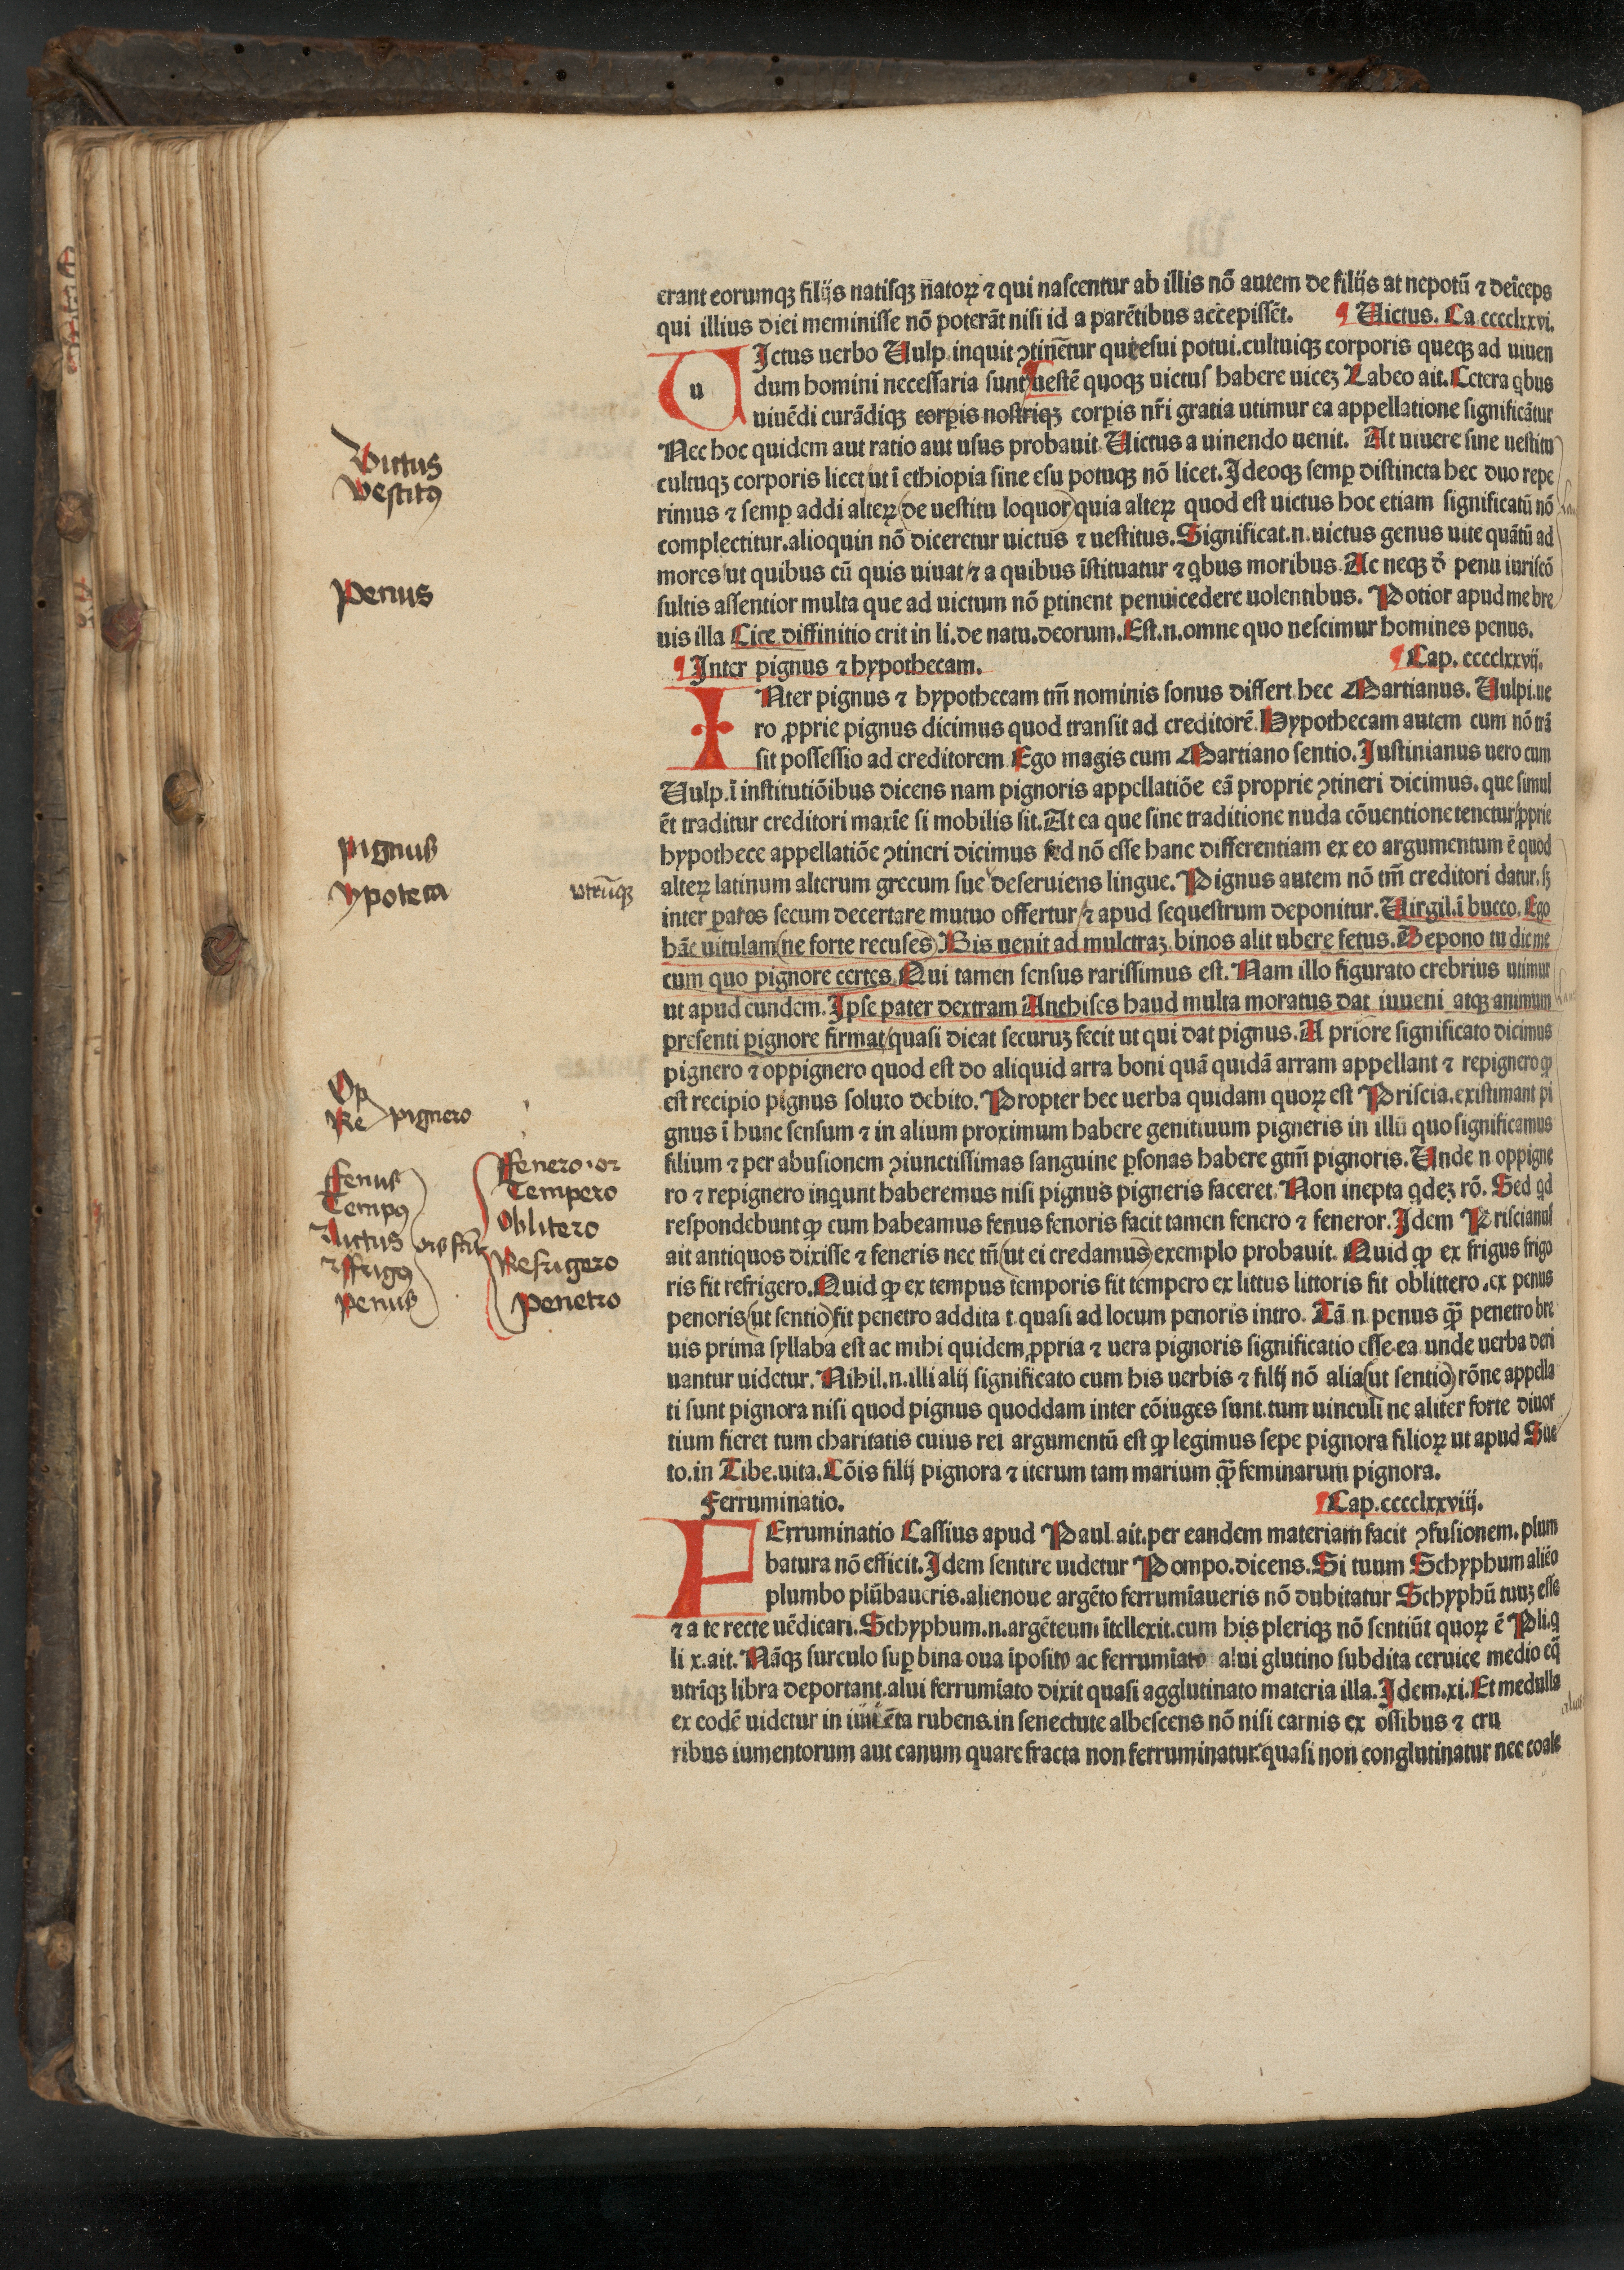 erant eorumqꝫ filijs natiſqꝫ natoꝝ ⁊ qui naſcentur ab illis nõ autem de filijs at nepotũ ⁊ deĩceps
qui illius diei meminiſſe nõ poterãt niſi id a parẽtibus accepiſſẽt. ¶ Uictus. Ca ccccxxvi.
UIctus uerbo Uulp. inquit ꝯtinẽtur que eſui potui.cultuiqꝫ corporis queqꝫ ad uiuen
u
dum homini neceſſaria ſunt ueſtẽ quoqꝫ uictuſ habere uiceꝫ Labeo ait. Cetera qbus
uiuẽdi curãdiqꝫ corꝑis noſtriqꝫ corꝑis nr̃i gratia utimur ea appellatione ſignificãtur
Nec hoc quidem aut ratio aut uſus probauit. Uictus a uinendo uenit. At uiuere ſine ueſtitu
cultuqꝫ corporis licet ut ĩ ethiopia ſine eſu potuqꝫ nõ licet. Ideoqꝫ ſemꝑ diſtincta hec duo repe
rimus ⁊ ſemꝑ addi alteꝝ (de ueſtitu loquor) quia alteꝝ quod eſt uictus hoc etiam ſignificatũ nõ
complectitur.alioquin nõ diceretur uictus ⁊ ueſtitus. Significat.n.uictus genus uite quãtũ ad
mores/ut quibus cũ quis uiuat/⁊ a quibus ĩſtituatur ⁊ qbus moribus. Ac neqꝫ ð penu iuriſcõ
ſultis aſſentior multa que ad uictum nõ ꝑtinent penui cedere uolentibus. Potior apud me bre
uis illa Cice diffinitio erit in li.de natu.deorum. Eſt.n.omne quo neſcimur homines penus.
¶ Inter pignus ⁊ hypothecam. ¶ Cap. cccclxxvij.
INter pignus ⁊ hypothecam tm̃ nominis ſonus differt hec Martianus. Uulpi.ue
ro ꝓprie pignus dicimus quod tranſit ad creditorẽ. Hypothecam autem cum nõ trã
ſit poſſeſſio ad creditorem Ego magis cum Martiano ſentio. Iuſtinianus uero cum
Uulp.ĩ inſtitutiõibus dicens nam pignoris appellatiõe eã proprie ꝯtineri dicimus. que ſimul
ẽt traditur creditori maxĩe ſi mobilis ſit. At ea que ſine traditione nuda cõuentione tenetur/ꝓprie
hypothece appellatiõe ꝯtineri dicimus ſed nõ eſſe hanc differentiam ex eo argumentum ẽ quod
alteꝝ latinum alterum grecum ſue deſeruiens lingue. Pignus autem nõ tm̃ creditori datur.ſꝫ
inter ꝑatos ſecum decertare mutuo offertur/⁊ apud ſequeſtrum deponitur. Uirgil.ĩ bucco. Ego
hãc uitulam (ne forte recuſes). Bis uenit ad mulctraꝫ binos alit ubere fetus. Depono tu dic me
cum quo pignore certes. Qui tamen ſenſus rariſſimus eſt. Nam illo figurato crebrius utimur
ut apud eundem. Ipſe pater dextram Anchiſes haud multa moratus dat iuueni atqꝫ animum
preſenti pignore firmat/quaſi dicat ſecuruꝫ fecit ut qui dat pignus. A priore ſignificato dicimus
pignero ⁊ oppignero quod eſt do aliquid arra boni quã quidã arram appellant ⁊ repignero ꝙ
eſt recipio pignus ſoluto debito. Propter hec uerba quidam quoꝝ eſt Priſcia.exiſtimant pi
gnus ĩ hunc ſenſum ⁊ in alium proximum habere genitiuum pigneris in illũ quo ſignificamus
filium ⁊ per abuſionem ꝯiunctiſſimas ſanguine ꝑſonas habere gtm̃ pignoris. Unde n oppigne
ro ⁊ repignero inqunt haberemus niſi pignus pigneris faceret. Non inepta qdeꝫ rõ. Sed qd
reſpondebunt ꝙ cum habeamus fenus fenoris facit tamen fenero ⁊ feneror. Idem Priſcianuſ
ait antiquos dixiſſe ⁊ feneris nec tñ (ut ei credamus) exemplo probauit. Quid ꝙ ex frigus frigo
ris fit refrigero. Quid ꝙ ex tempus temporis fit tempero ex littus littoris fit oblittero.ex penus
penoris (ut ſentio) fit penetro addita t quaſi ad locum penoris intro. Tã n penus qꝫ̃ penetro bre
uis prima ſyllaba eſt ac mihi quidem ꝓpria ⁊ uera pignoris ſignificatio eſſe.ea unde uerba deri
uantur uidetur. Nihil.n.illi alij ſignificato cum his uerbis ⁊ filij nõ alia (ut ſentio) rõne appella
ti ſunt pignora niſi quod pignus quoddam inter cõiuges ſunt.tum uinculi ne aliter forte diuor
tium fieret tum charitatis cuius rei argumentũ eſt ꝙ legimus ſepe pignora filioꝝ ut apud Sue
to.in Tibe.uita. Cõis filij pignora ⁊ iterum tam marium qꝫ̃ feminarum pignora.
Ferruminatio. ¶ Cap.cccclxxviij.
FErruminatio Caſſius apud Paul.ait.per eandem materiam facit ꝯfuſionem.plum
batura nõ efficit. Idem ſentire uidetur Pompo.dicens. Si tuum Schyphum aliẽo
plumbo plũbaueris.alienoue argẽto ferrumĩaueris nõ dubitatur Schyphũ tuuꝫ eſſe
⁊ a te recte uẽdicari. Schyphum.n.argẽteum ĩtellexit.cum his pleriqꝫ nõ ſentiũt quoꝝ ẽ Pli.q
li x.ait. Nãqꝫ ſurculo ſuꝑ bina oua ĩpoſito ac ferrumĩato alui glutino ſubdita ceruice medio eq̃
utrĩqꝫ libra deportant.alui ferrumĩato dixit quaſi agglutinato materia illa. Idem.xi. Et medulla
ex eodẽ uidetur in iuuẽta rubens.in ſenectute albeſcens nõ niſi carnis ex oſſibus ⁊ cru
ribus iumentorum aut canum quare fracta non ferruminatur.quaſi non conglutinatur nec coale
Victus
Vestitꝰ
Penus
Pignus
ypoteca
vtrũqꝫ
Op
Re pignero
Fenus
Tempꝰ
Lictus
⁊ Frigꝰ
Penus
Fenero.or
Tempero
Oblitero
Refrigero
Penetro